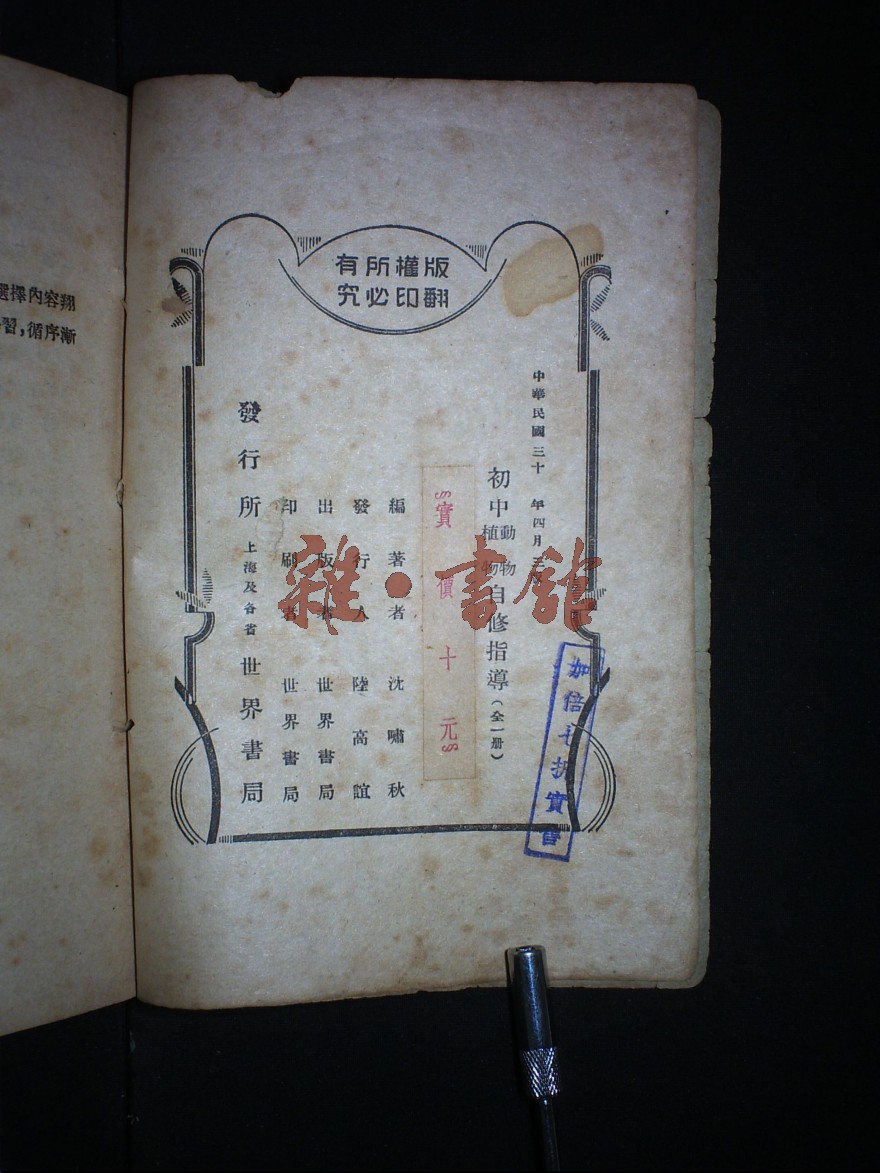 版權所有
翻印必究
中華民國三十 年四月三版
初中動物植物自修指導(全一冊)
實價十元
編著者 沈嘯秋
發行人 陸高誼
出版者 世界書局
印刷者 世界書局
發行所 上海及各省 世界書局
加倍七折實售
雜·書館
選擇內容翔
習,循序漸